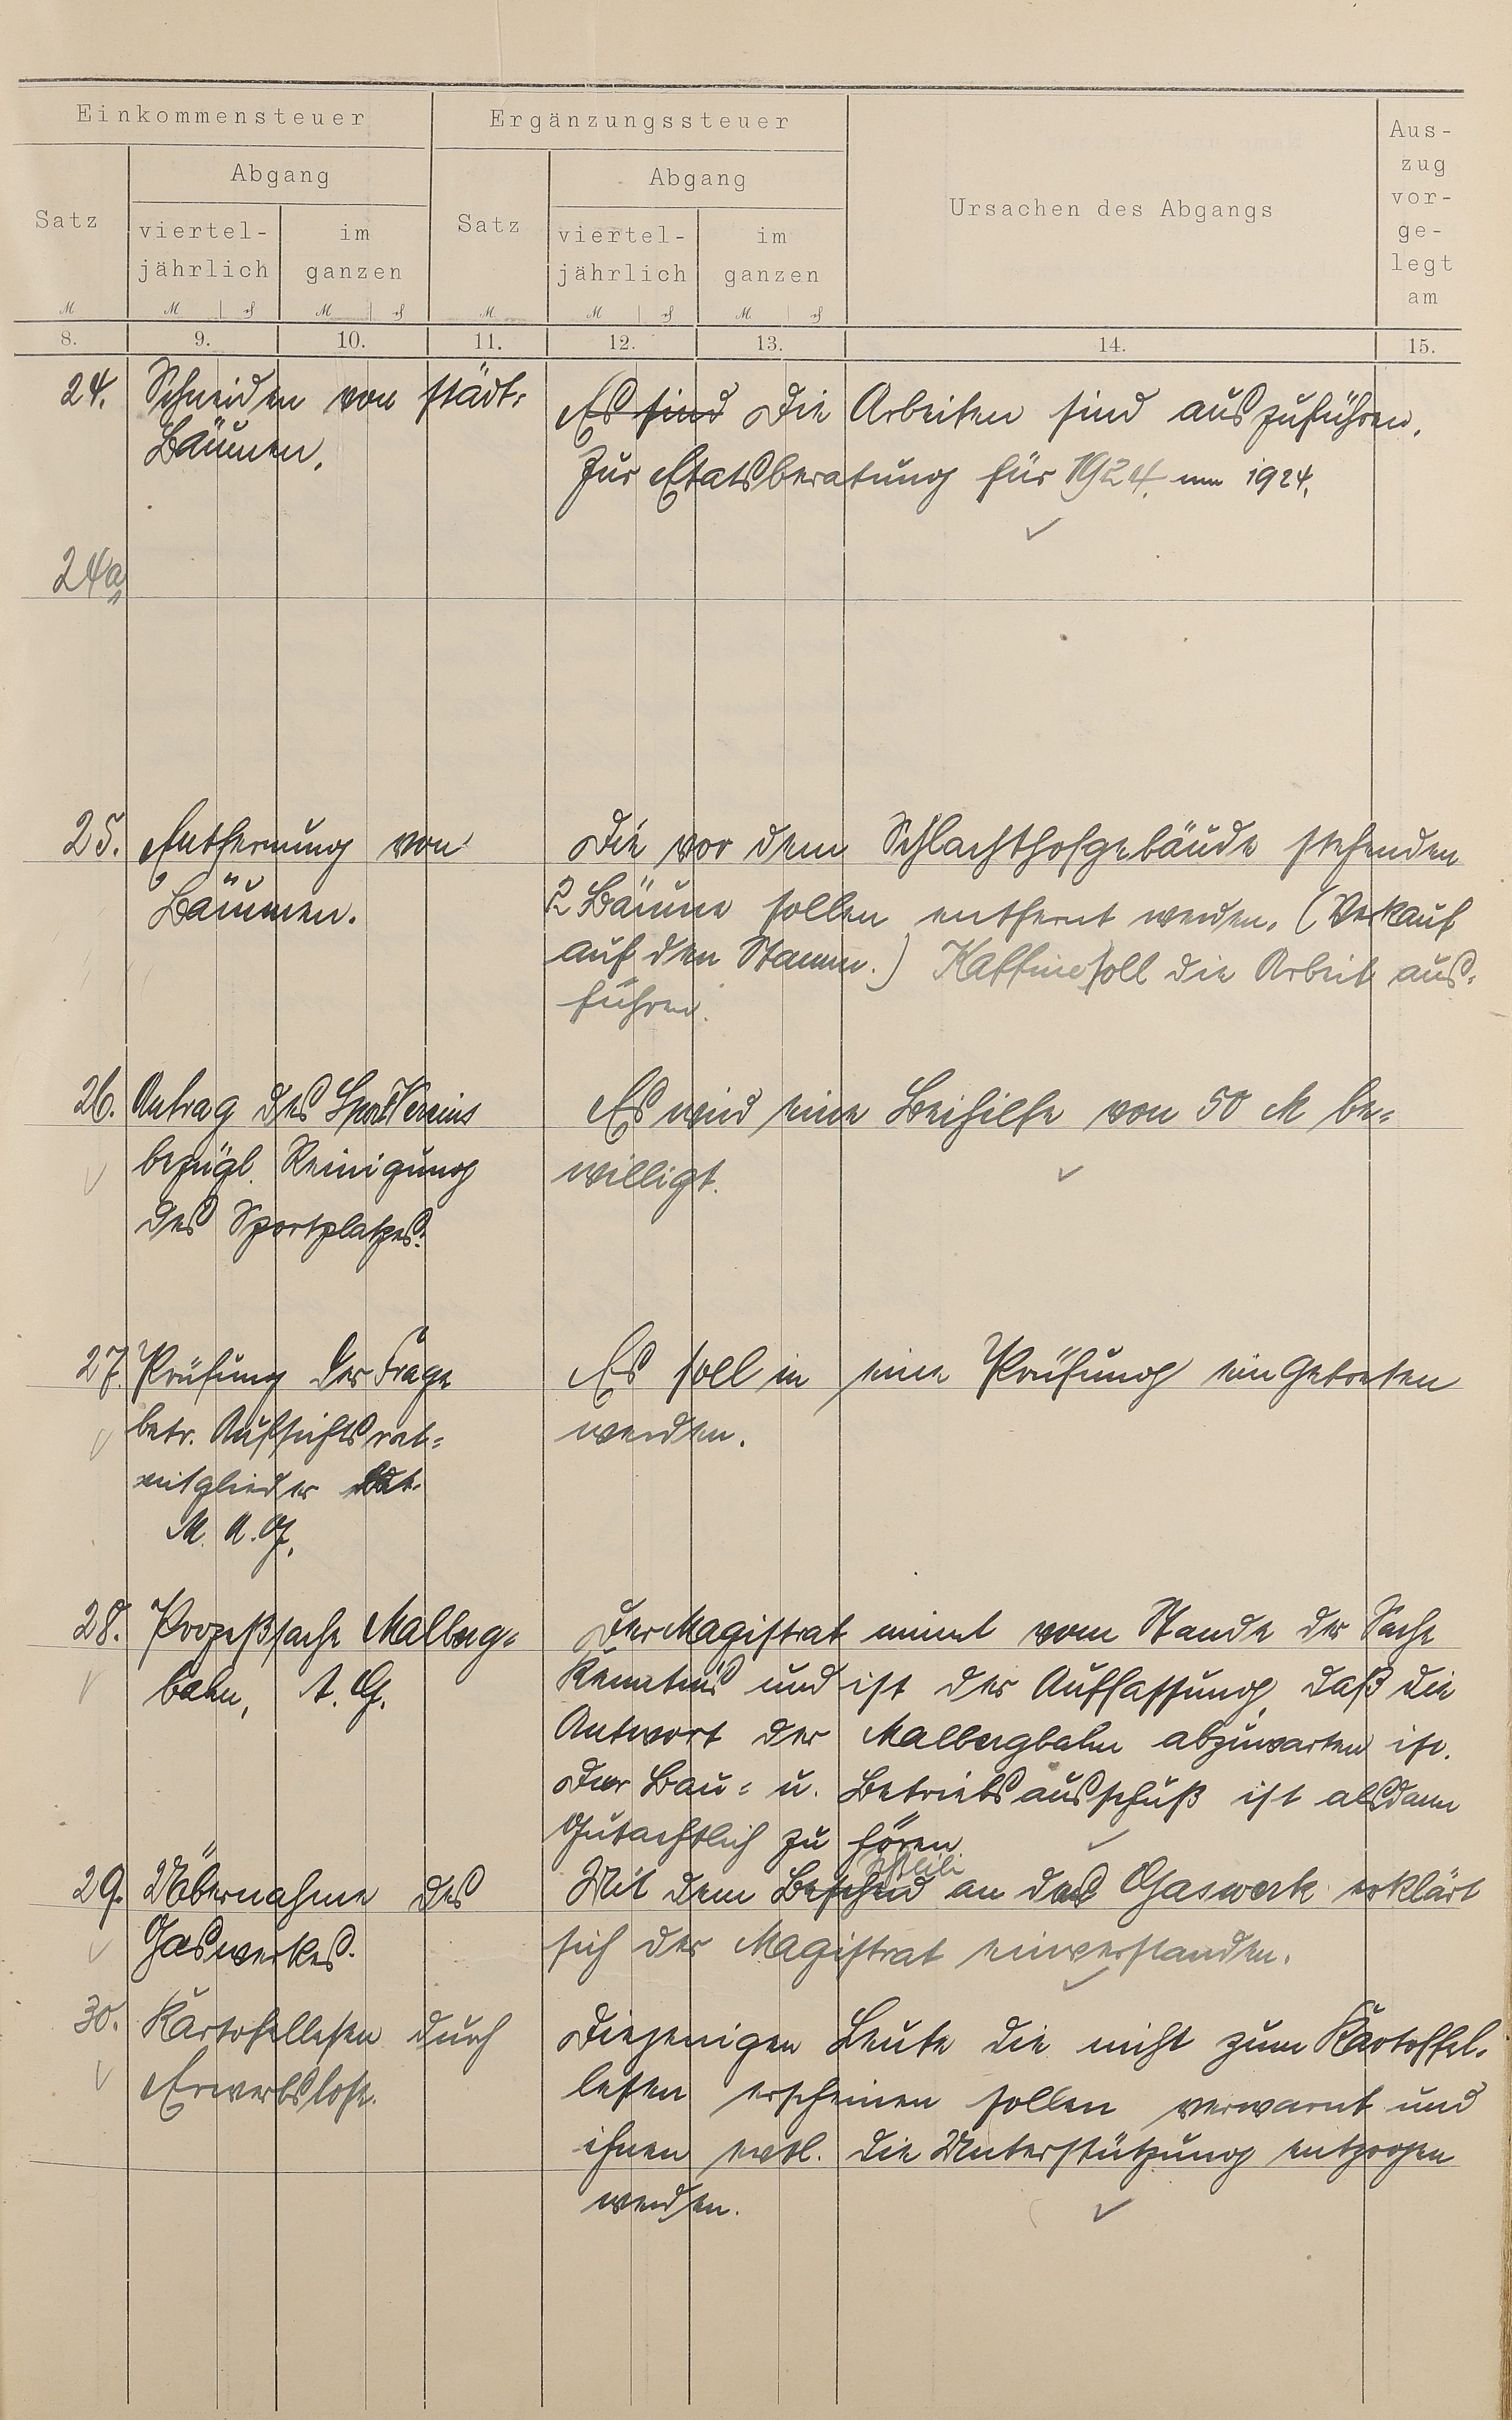 Einkommensteuer
Ergänzungssteuer
Ursachen des Abgangs
Aus-
zug
vor-
ge-
legt
am
Satz
Abgang
viertel-
jährlich
im
ganzen
Satz
Abgang
viertel-
jährlich
im
ganzen
M M ₰ M ₰ M M ₰ M ₰
8. 9. 10. 11. 12. 13. 14. 15.
24. Schneiden von städt.
Bäumen.
Es sind Die Arbeiten sind auszuführen.
Zur Etatsberatung für 1924. 1924.
24a
25. Entfernung von
Bäumen.
Die vor dem Schlachthofgebäude stehenden
2 Bäume sollen entfernt werden. (Verkauf
auf den Stamm.) soll die Arbeit aus-
führen.
26. Antrag des Sportvereins
bezügl. Reinigung
des Sportplatzes.
Es wird eine Beihilfe von 50 M be-
willigt.
27. Prüfung der Frage
betr. Aufsichtsrat-
mitglieder
M.A.G.
Es soll in eine Prüfung eingetreten
werden.
28. Prozeßsache Malberg-
bahn, A.G.
Der Magistrat nimmt vom Stande der Sache
Kenntnis und ist der Auffassung, daß die
Antwort der Malbergbahn abzuwarten ist.
Der Bau- u. Betriebsausschuß ist alsdann
gutachtlich zu hören.
29. Übernahme des
Gaswerkes.
Mit dem Bescheid an das Gaswerk erklärt
sich der Magistrat einverstanden.
30. Kartofellesen durch
Erwerbslose.
Diejenigen Leute die nicht zum Kartoffel-
lesen erscheinen sollen verwarnt und
ihnen evtl. die Unterstützung entzogen
werden.